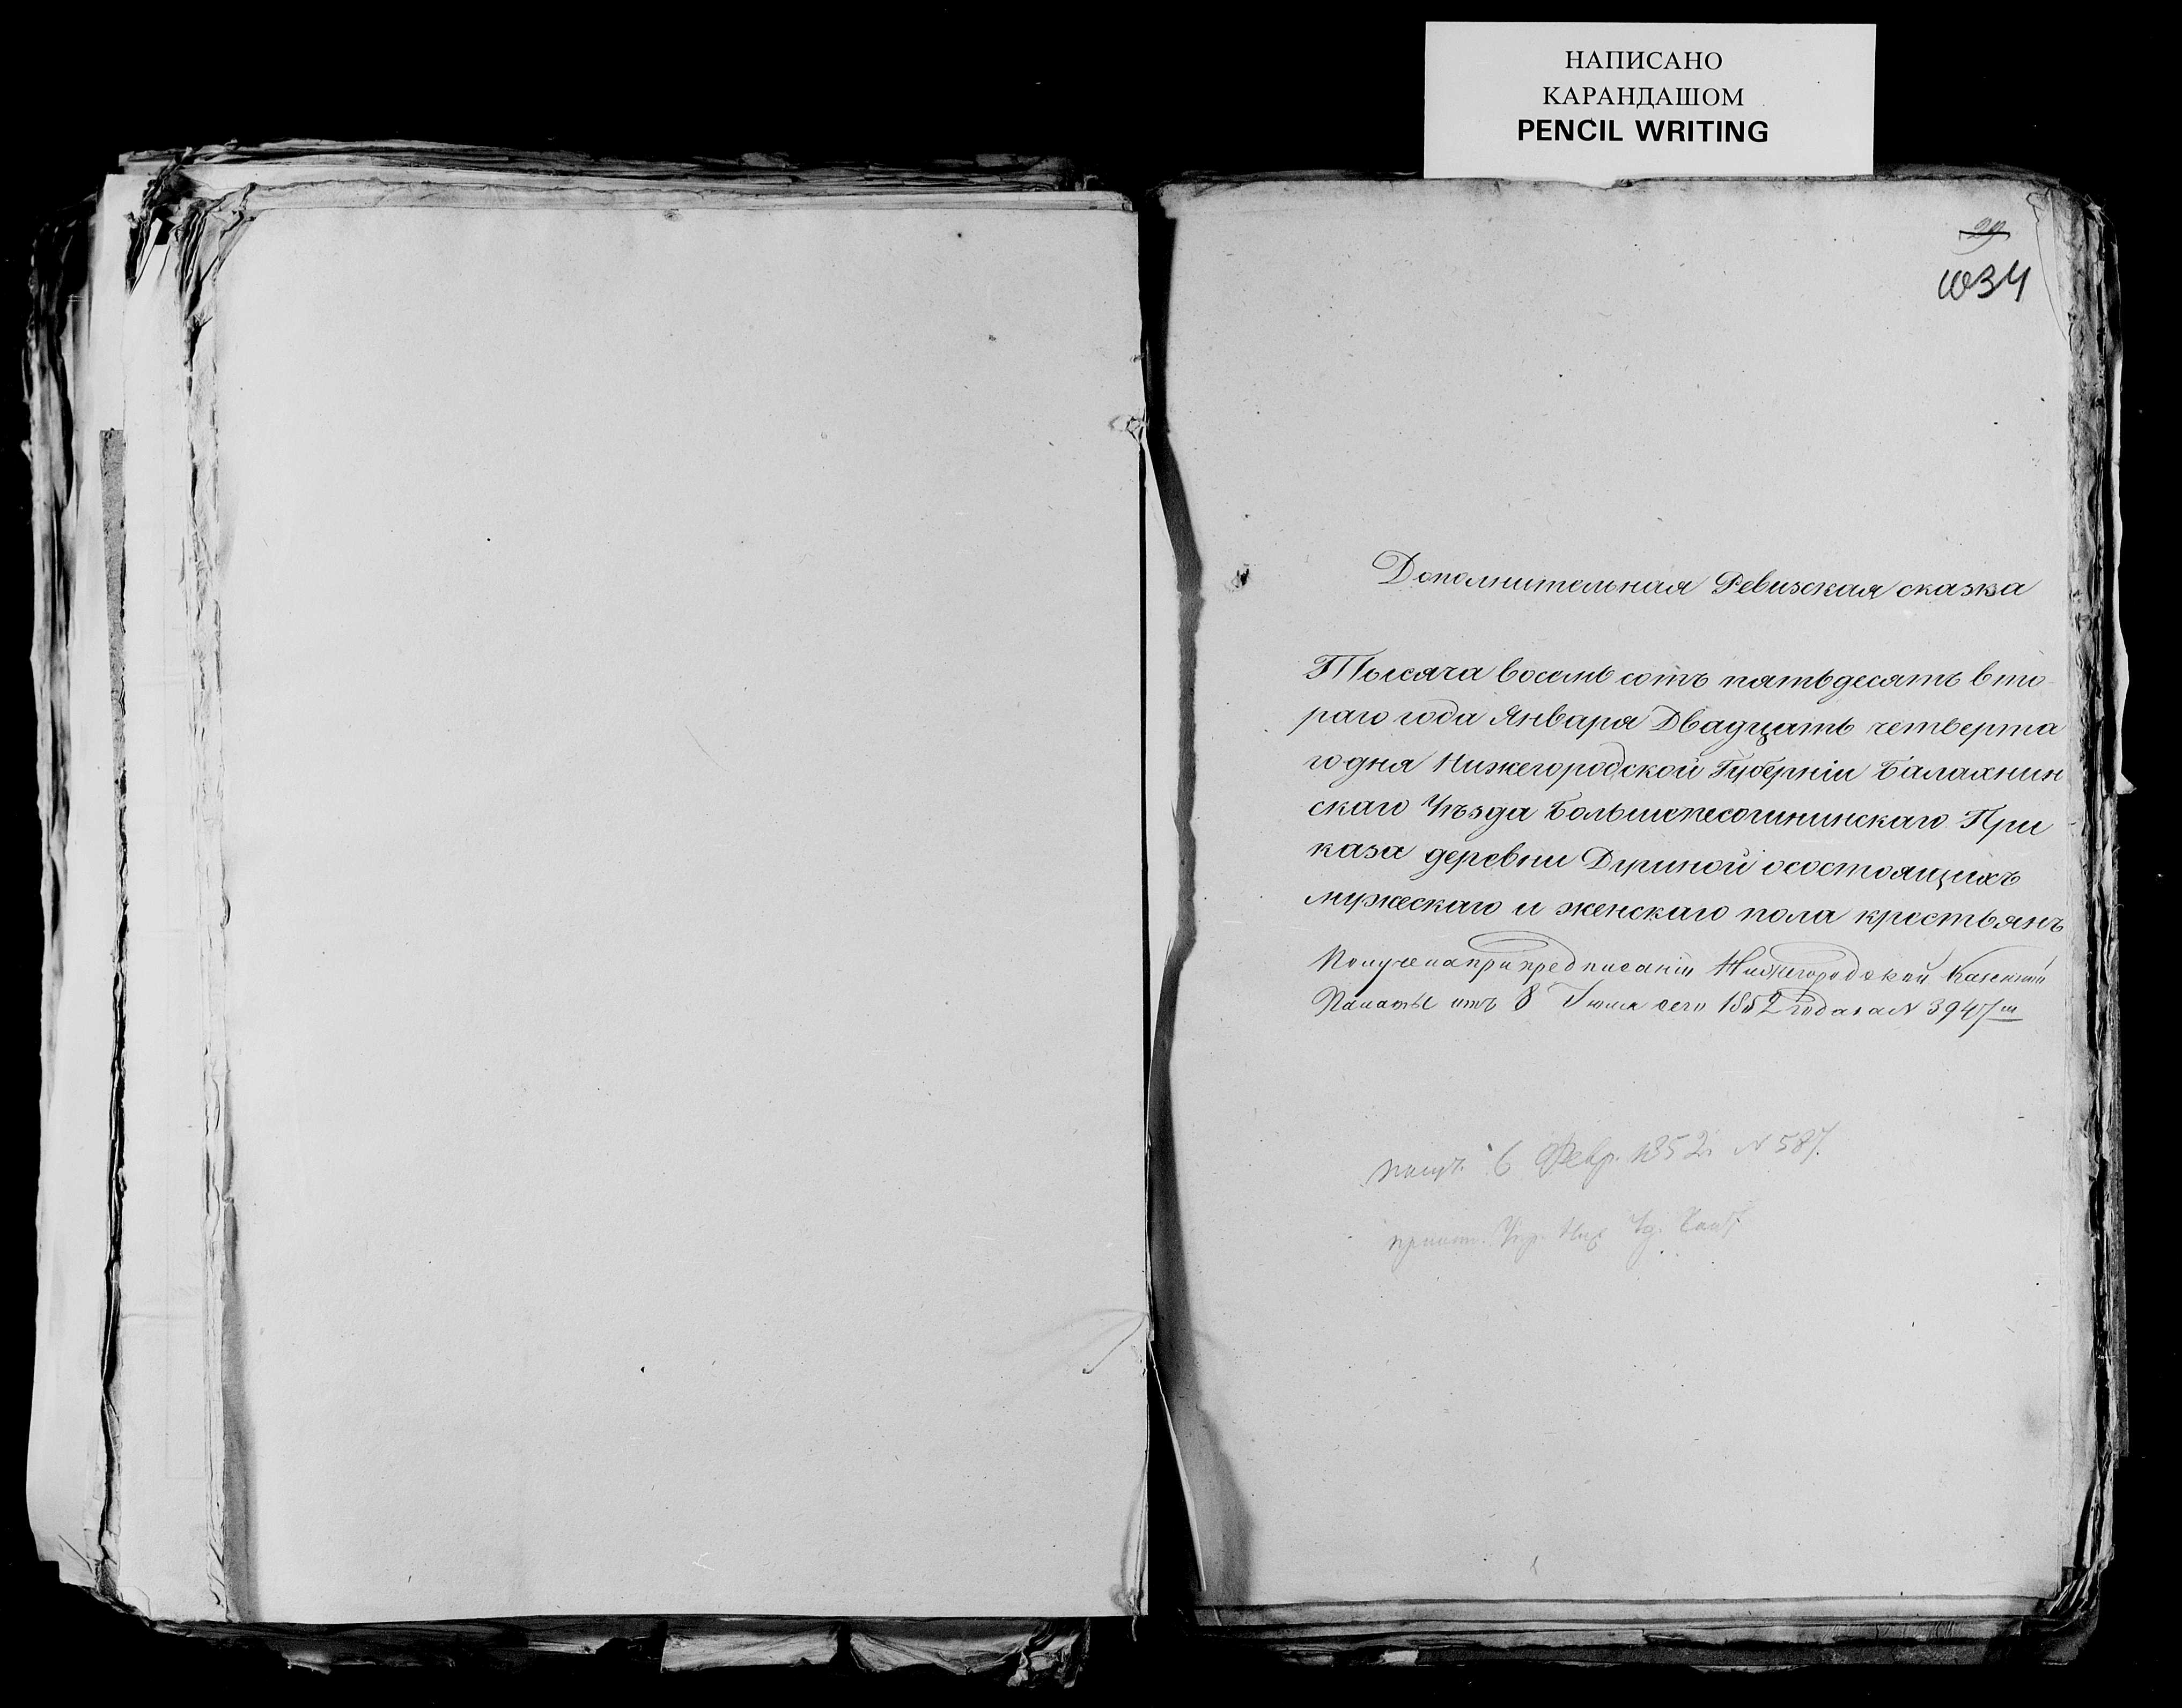 НАПИСАНО
КАРАНДАШОМ
PENCIL WRITING
29
1034
Дополнительная Ревизская сказка
Тысяча восемь сотъ пятьдесятъ вто
раго года Января Двадцать четверта
го дня Нижегородской Губерніи Балахнин
скаго Уѣзда Большепесошнинскаго При
каза деревни Дуриной осостоящихъ
мужескаго и женскаго пола крестьянъ
Получена при предписаніи Нижегородской Казенной
Палаты отъ 8 Іюля сего 1852 года за N 3947м
получ. 6 Февр. 1852 N 587.